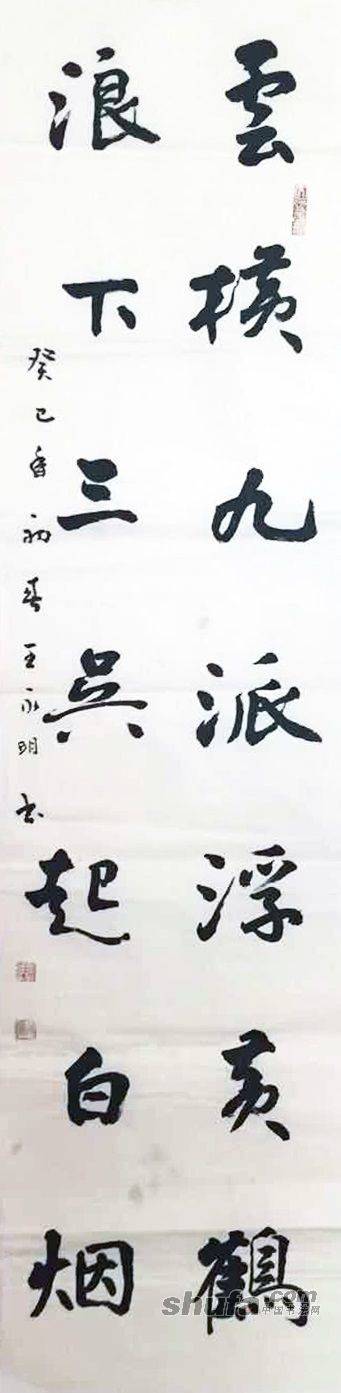 雲橫九派浮黃鶴
浪下三吳起白烟
癸巳年初春王永明书
shufa.com
中国书法网